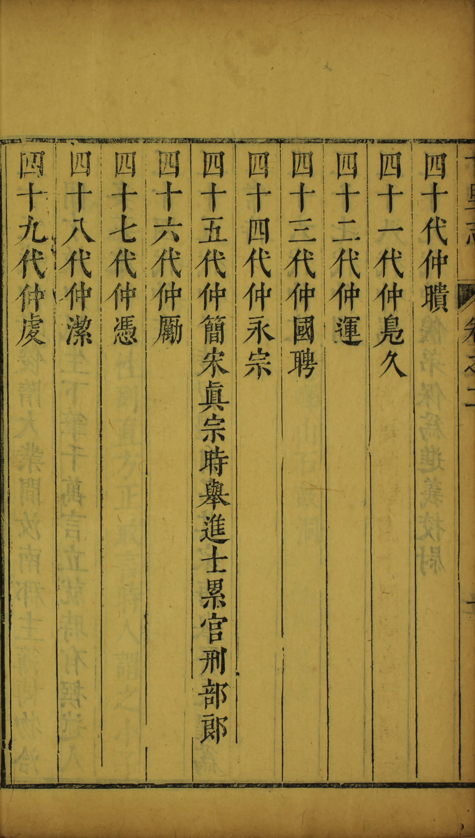 四十代仲贖
四十一代仲鳧久
四十二代仲運
四十三代仲國聘
四十四代仲永宗
四十五代仲簡宋眞宗時舉進士累官刑部郎
四十六代仲勵
四十七代仲憑
四十八代仲潔
四十九代仲虔